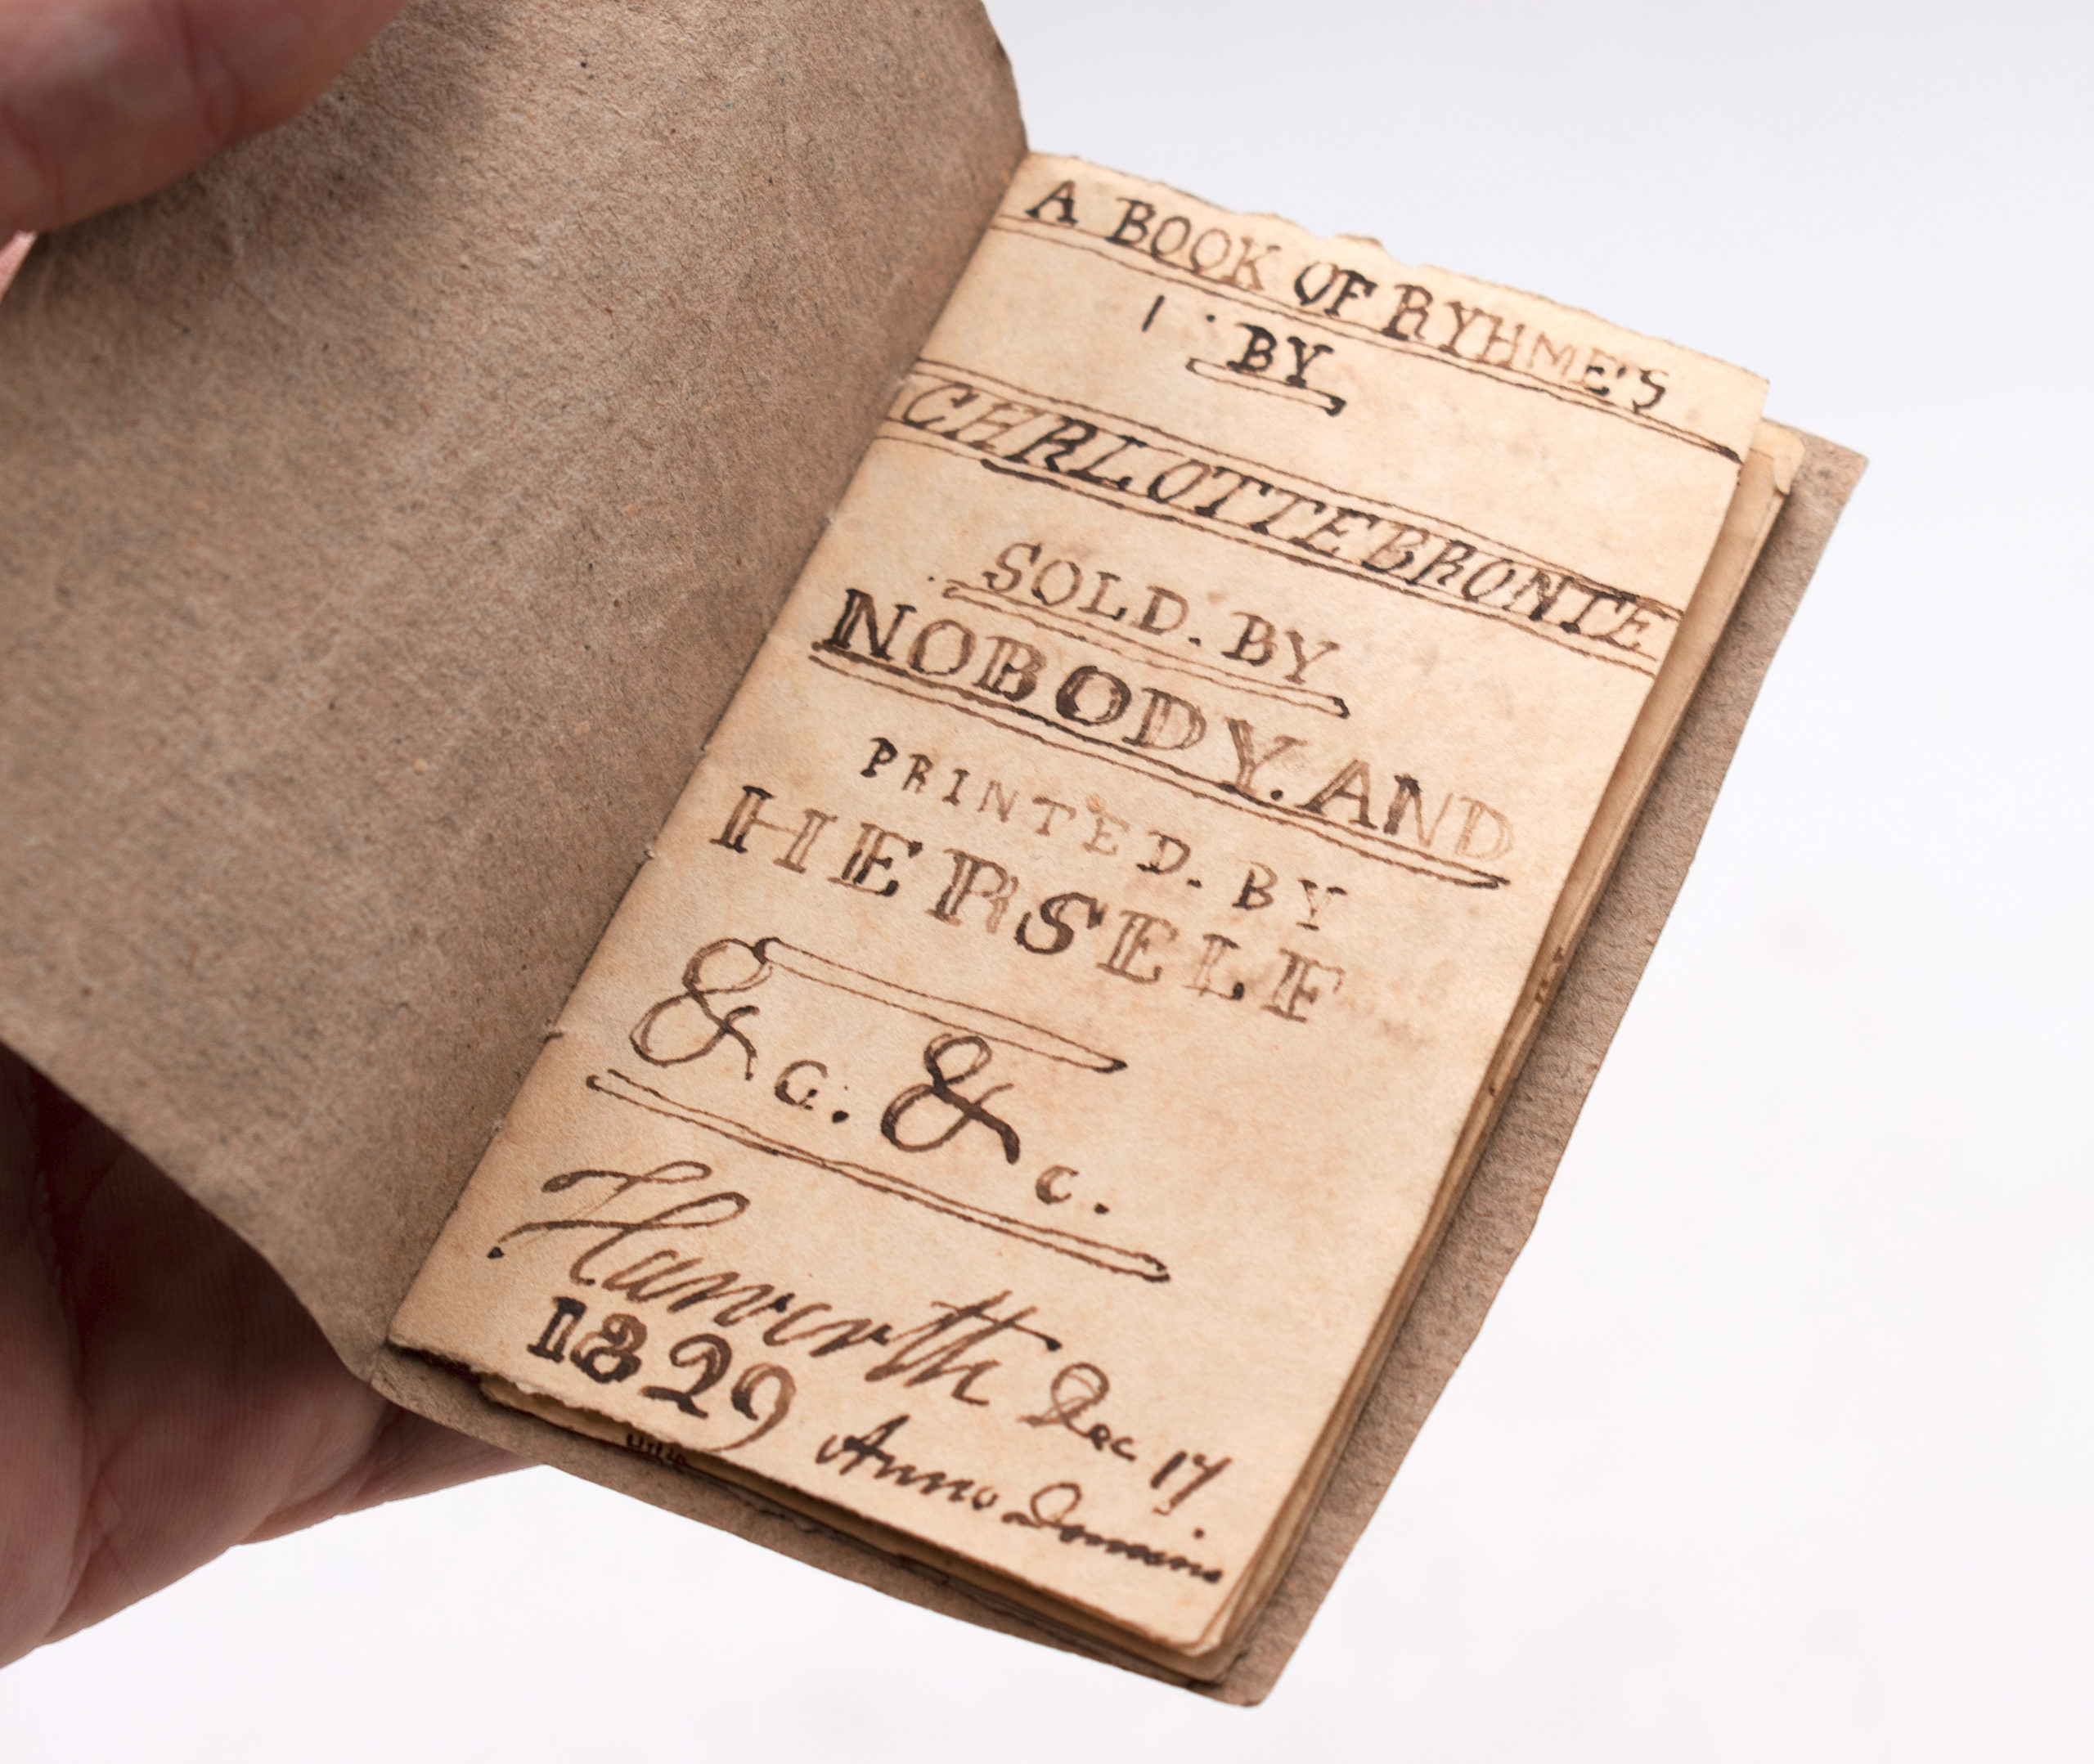 A BOOK OF RYHME'S
BY
CHRLOTTE BRONTE
SOLD. BY
NOBODY. AND
PRINTED. BY
HERSELF
&c. &c.
Haworth Dec 17
1829 Anno Domino